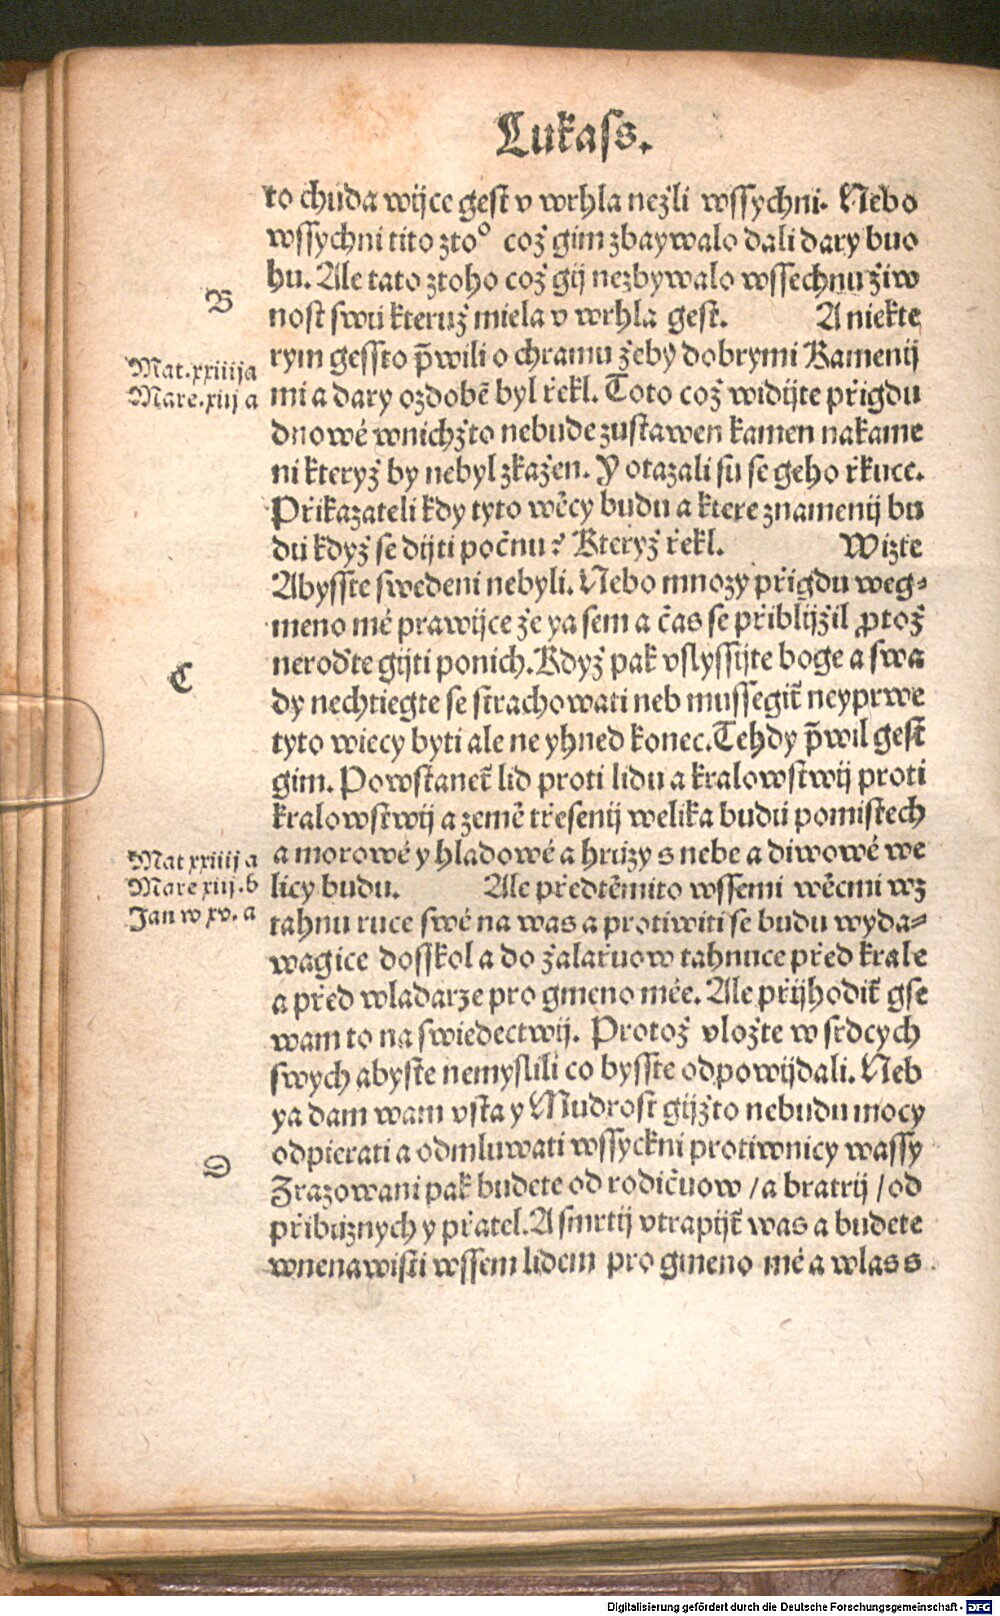 Lukass.
to chuda wijce gest v wrhla nežli wssychni. Nebo
wssychni tito ztoº což gim zbaywalo dali dary buo
hu. Ale tato ztoho což gij nezbywalo wssechnu žiw
B
nost swu kteruž miela v wrhla gest. A niekte
rym gessto p̃wili o chramu žeby dobrymi Kamenij
Mat.xxiiija
Marc.xiij a
mi a dary ozdobẽ byl řekl. Toto což widijte přigdu
dnowé wnichžto nebude zustawen kamen nakame
ni kteryž by nebyl zkažen. Y otazali su se geho řkuce.
Přikazateli kdy tyto wěcy budu a ktere znamenij bu
du když se dijti počnu? Kteryž řekl. Wizte
Abysste swedeni nebyli. Nebo mnozy přigdu weg-
meno mé prawijce že ya sem a čas se přiblijžil ꝓtož
C
neroďte gijti ponich. Když pak vslyssijte boge a swa
dy nechtiegte se strachowati neb mussegit̃ neyprwe
tyto wiecy byti ale ne yhned konec. Tehdy p̃wil gest
gim. Powstanet̃ lid proti lidu a kralowstwij proti
kralowstwij a země třesenij welika budu pomistech
Mat xxiiij a
Marc xiij.b
Jan w xv. a
a morowé y hladowé a hruzy s nebe a diwowé we
licy budu. Ale předtěmito wssemi wěcmi wz
tahnu ruce swé na was a protiwiti se budu wyda-
wagice dosskol a do žalařuow tahnuce před krale
a před wladarze pro gmeno mée. Ale přijhodit̃ gse
wam to na swiedectwij. Protož vložte w srdcych
swych abyste nemyslili co bysste odpowijdali. Neb
ya dam wam vsta y Mudrost gijžto nebudu mocy
odpierati a odmluwati wssyckni protiwnicy wassy
D
Zrazowani pak budete od rodičuow / a bratrij / od
přibuznych y přatel. A smrtij vtrapijt̃ was a budete
wnenawisti wssem lidem pro gmeno mé a wlas s
Digitalisierung gefördert durch die Deutsche Forschungsgemeinschaft - DFG